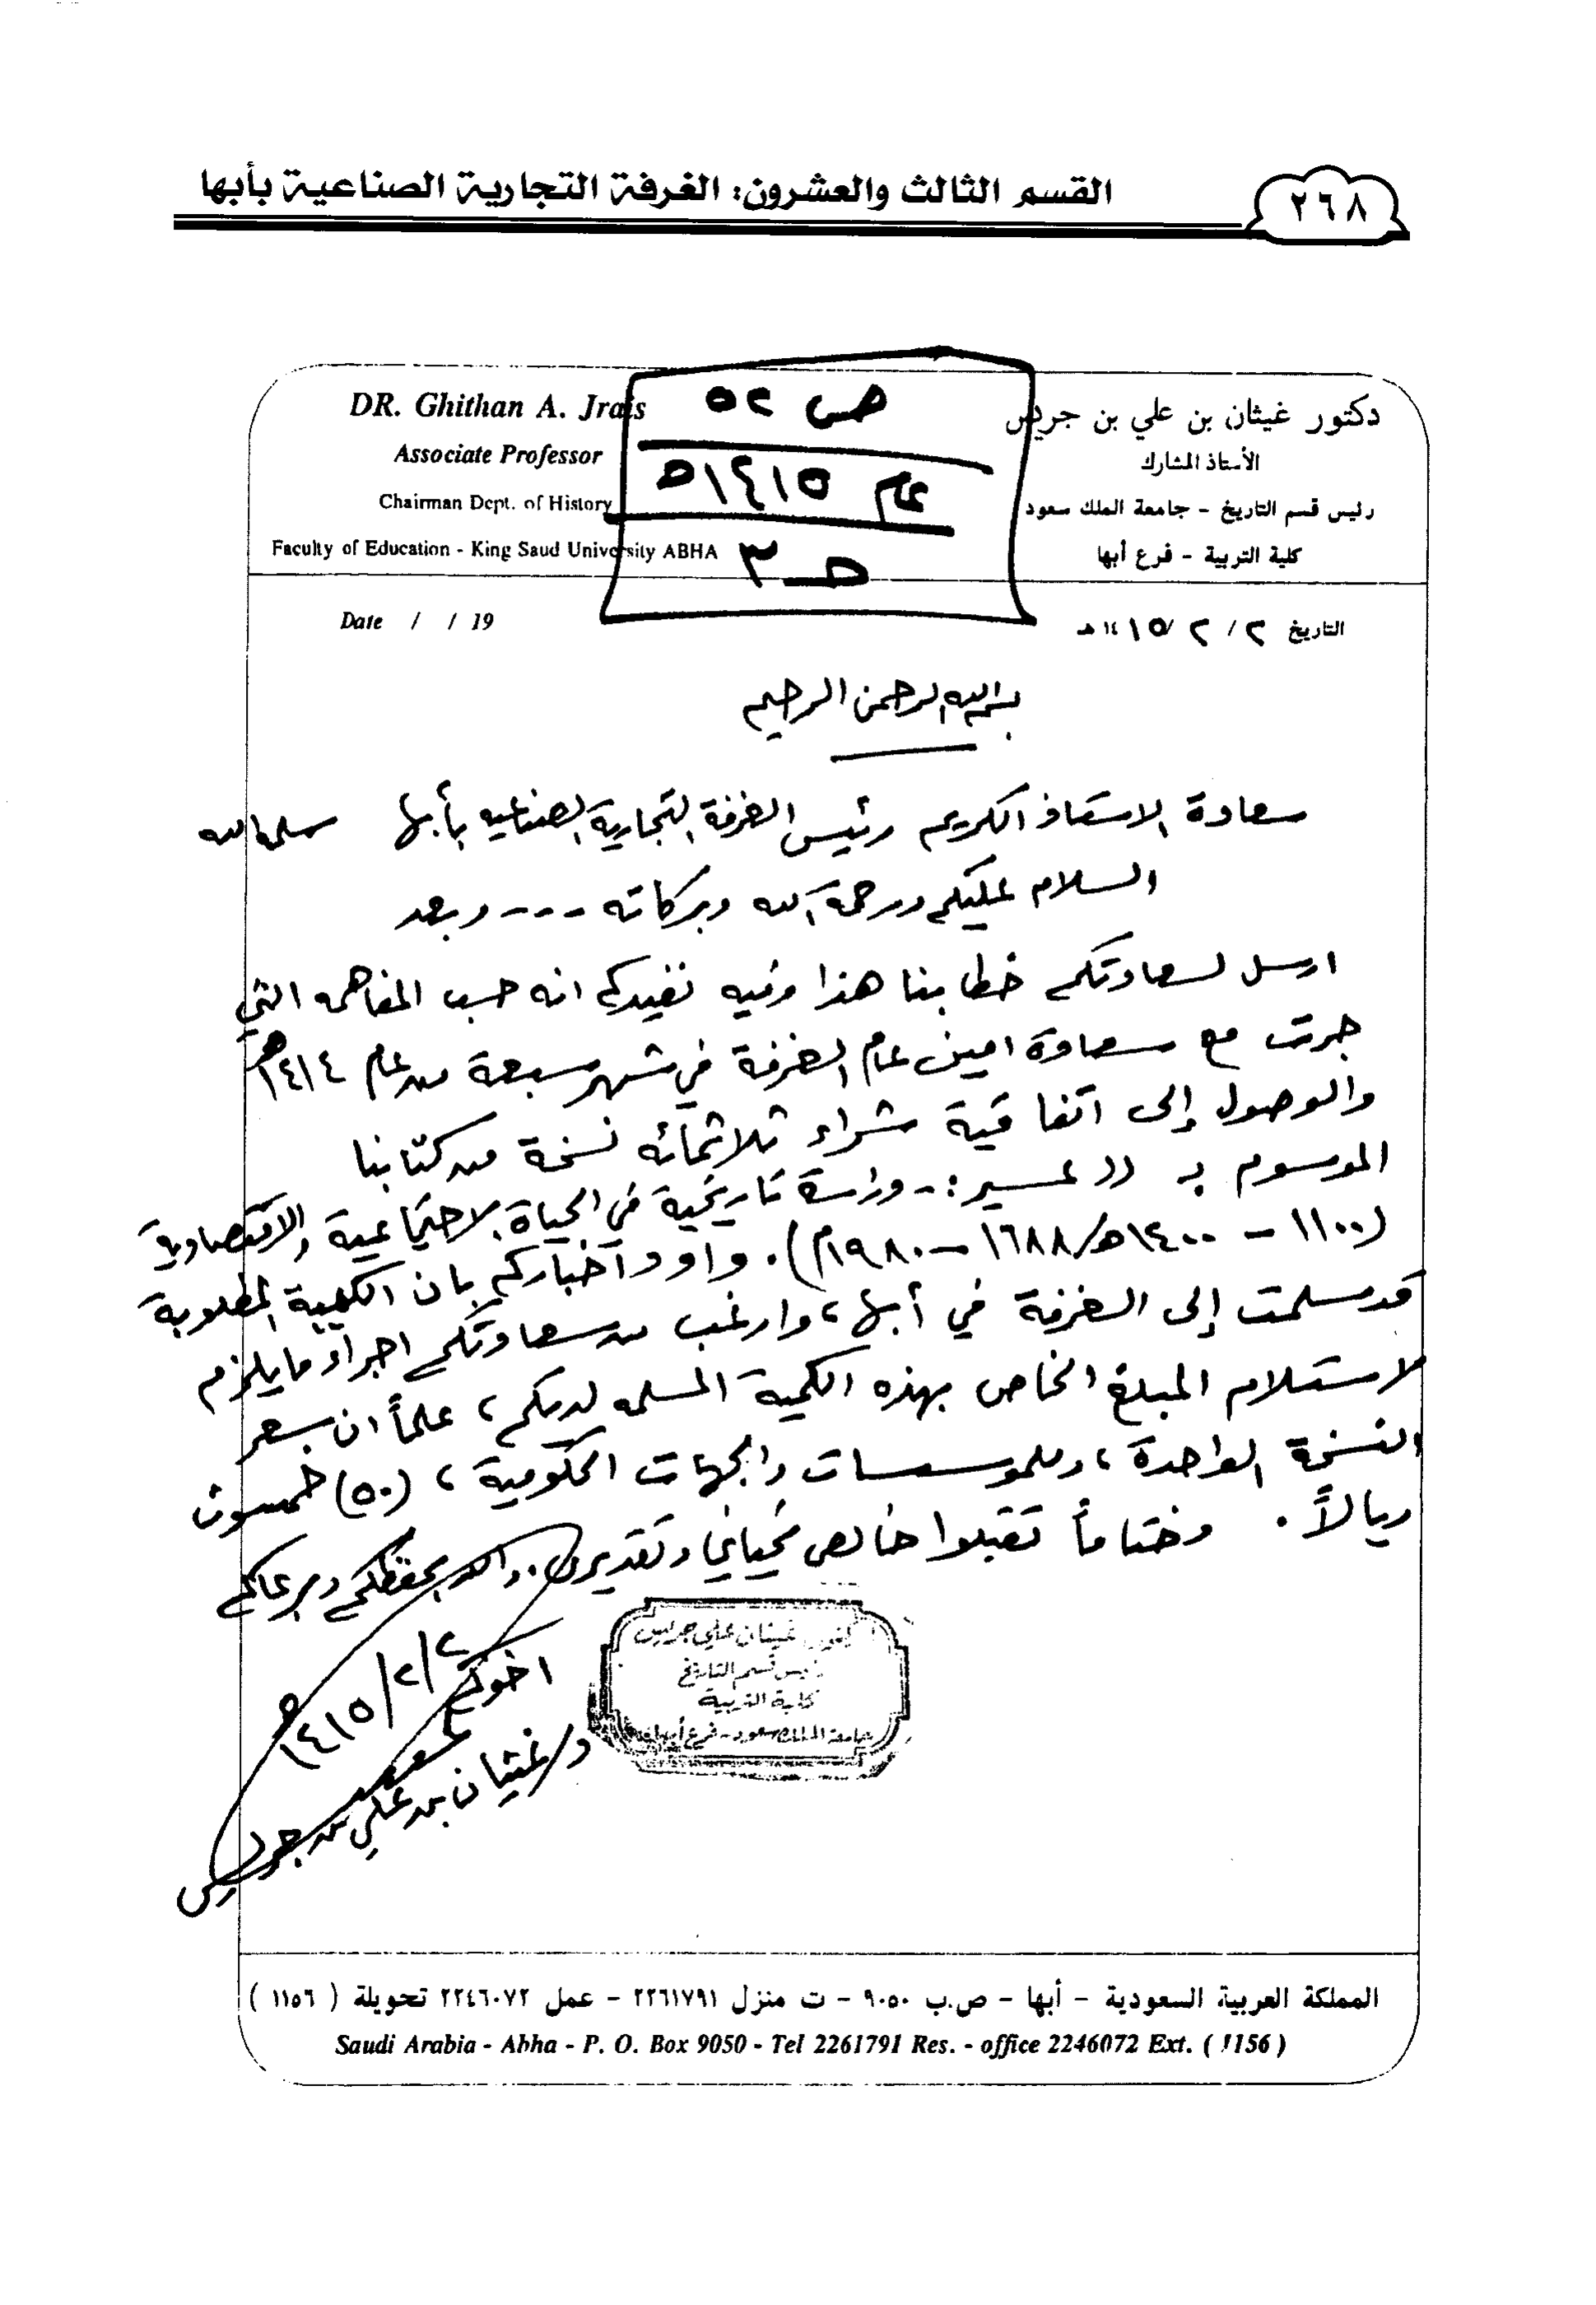 ٢٦٨
القسم الثالث والعشرون: الغرفة التجارية الصناعية بأبها
DR. Ghithan A. Jrais
Associate Professor
Chairman Dept. of History
Faculty of Education - King Saud University ABHA
ص ٥٢
عام ١٤١٥ه
حـ ٣
دكتور غيثان بن علي بن جريس
الأستاذ المشارك
رئيس قسم التاريخ - جامعة الملك سعود
كلية التربية - فرع أبها
Date / / 19
التاريخ ٢ / ٢ / ١٤١٥هـ
بسم الله الرحمن الرحيم
سعادة الاستاذ الكريم رئيس الغرفة التجارية الصناعيه بأبها سلمه الله
السلام عليكم ورحمة الله وبركاته --- وبعد
ارسل لسعادتكم خطابنا هذا وفيه نفيدكم انه حسب المفاهمه التي
جرت مع سعادة امين عام الغرفة في شهر سبعة من عام ١٤١٤ه
والوصول إلى اتفاقية شراء ثلاثمائه نسخة من كتابنا
الموسوم بـ ((عسير:- دراسة تاريخية في الحياة الاجتماعية والاقتصادية
(١١٠٠ - ١٤٠٠ه/١٦٨٨ - ١٩٨٠م). واود اخباركم بان الكمية المطلوبة
قد سلمت إلى الغرفة في أبها، وارغب من سعادتكم اجراء ما يلزم
لاستلام المبلغ الخاص بهذه الكمية المسلمه لديكم، علماً ان سعر
النسخة الواحدة، وللمؤسسات والجهات الحكومية، (٥٠) خمسون
ريالاً. وختاماً تقبلوا خالص تحياتي وتقديري. والله يحفظكم ويرعاكم
اخوكم
١٤١٥/٢/٢ه
د/غيثان بن علي بن جريس
غيثان علي جريس
رئيس قسم التاريخ
كلية التربية
جامعة الملك سعود - فرع أبها
المملكة العربية السعودية - أبها - ص.ب ٩٠٥٠ - ت منزل ٢٢٦١٧٩١ - عمل ٢٢٤٦٠٧٢ تحويلة ( ١١٥٦ )
Saudi Arabia - Abha - P. O. Box 9050 - Tel 2261791 Res. - office 2246072 Ext. ( 1156 )